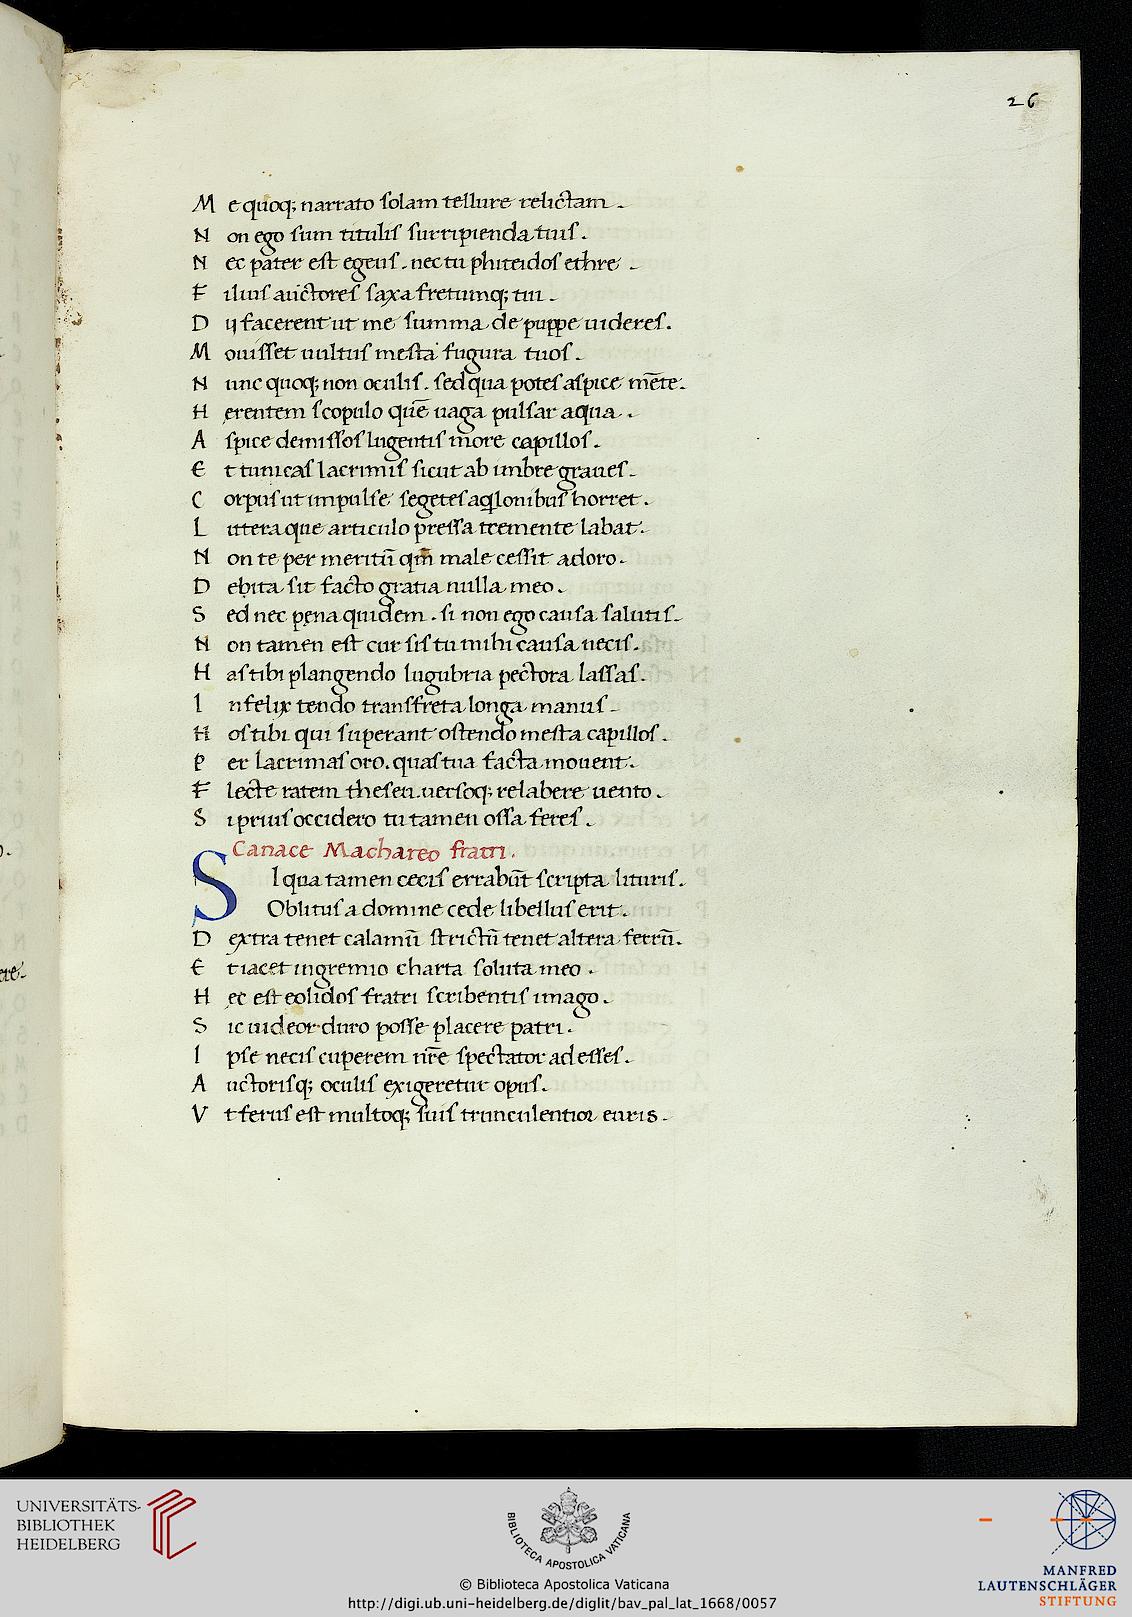 26
M e quoq; narrato solam tellure relictam .
N on ego sum titulis surripienda tuis .
N ec pater est egeus . nec tu phiteidos ethre .
F ilius auctores saxa fretumq; tui .
D ij facerent ut me summa de puppe uideres .
M ouisset uultus mesta fugura tuos .
N unc quoq; non oculis . sed qua potes aspice mēte .
H erentem scopulo quē uaga pulsat aqua .
A spice demissos lugentis more capillos .
E t tunicas lacrimis sicut ab imbre graues .
C orpus ut impulse segetes aqlonibus horret .
L ittera que articulo pressa tremente labat .
N on te per meritū qm̄ male cessit adoro .
D ebita sit facto gratia nulla meo .
S ed nec pena quidem . si non ego causa salutis .
N on tamen est cur sis tu mihi causa necis .
H as tibi plangendo lugubria pectora lassas .
I nfelix tendo trans freta longa manus .
H os tibi qui superant ostendo mesta capillos .
P er lacrimas oro . quas tua facta mouent .
F lecte ratem theseu . uersoq; relabere uento .
S i prius occidero tu tamen ossa feres .
Canace Machareo fratri .
S I qua tamen cecis errabūt scripta lituris .
Oblitus a domine cede libellus erit .
D extra tenet calamū strictū tenet altera ferrū .
E t iacet in gremio charta soluta meo .
H ec est eolidos fratri scribentis imago .
S ic uideor duro posse placere patri .
I pse necis cuperem nr̄e spectator adesses .
A uctorisq; oculis exigeretur opus .
V t ferus est multoq; suis trunculentior euris .
UNIVERSITÄTS-
BIBLIOTHEK
HEIDELBERG
BIBLIOTECA APOSTOLICA VATICANA
MANFRED
LAUTENSCHLÄGER
STIFTUNG
© Biblioteca Apostolica Vaticana
http://digi.ub.uni-heidelberg.de/diglit/bav_pal_lat_1668/0057